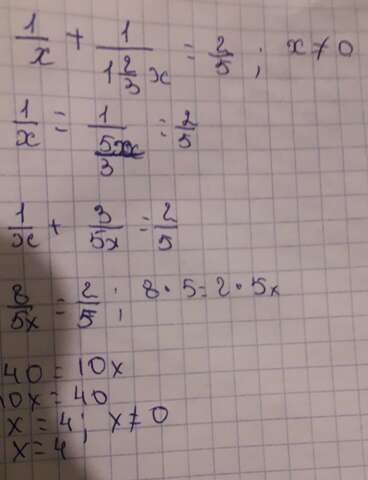 1/x + 1/(1 2/3 x) = 2/5 ; x ≠ 0
1/x = 1/(5x/3) = 2/5
1/x + 3/5x = 2/5
8/5x = 2/5 ; 8 · 5 = 2 · 5x
40 = 10x
10x = 40
x = 4 ; x ≠ 0
x = 4